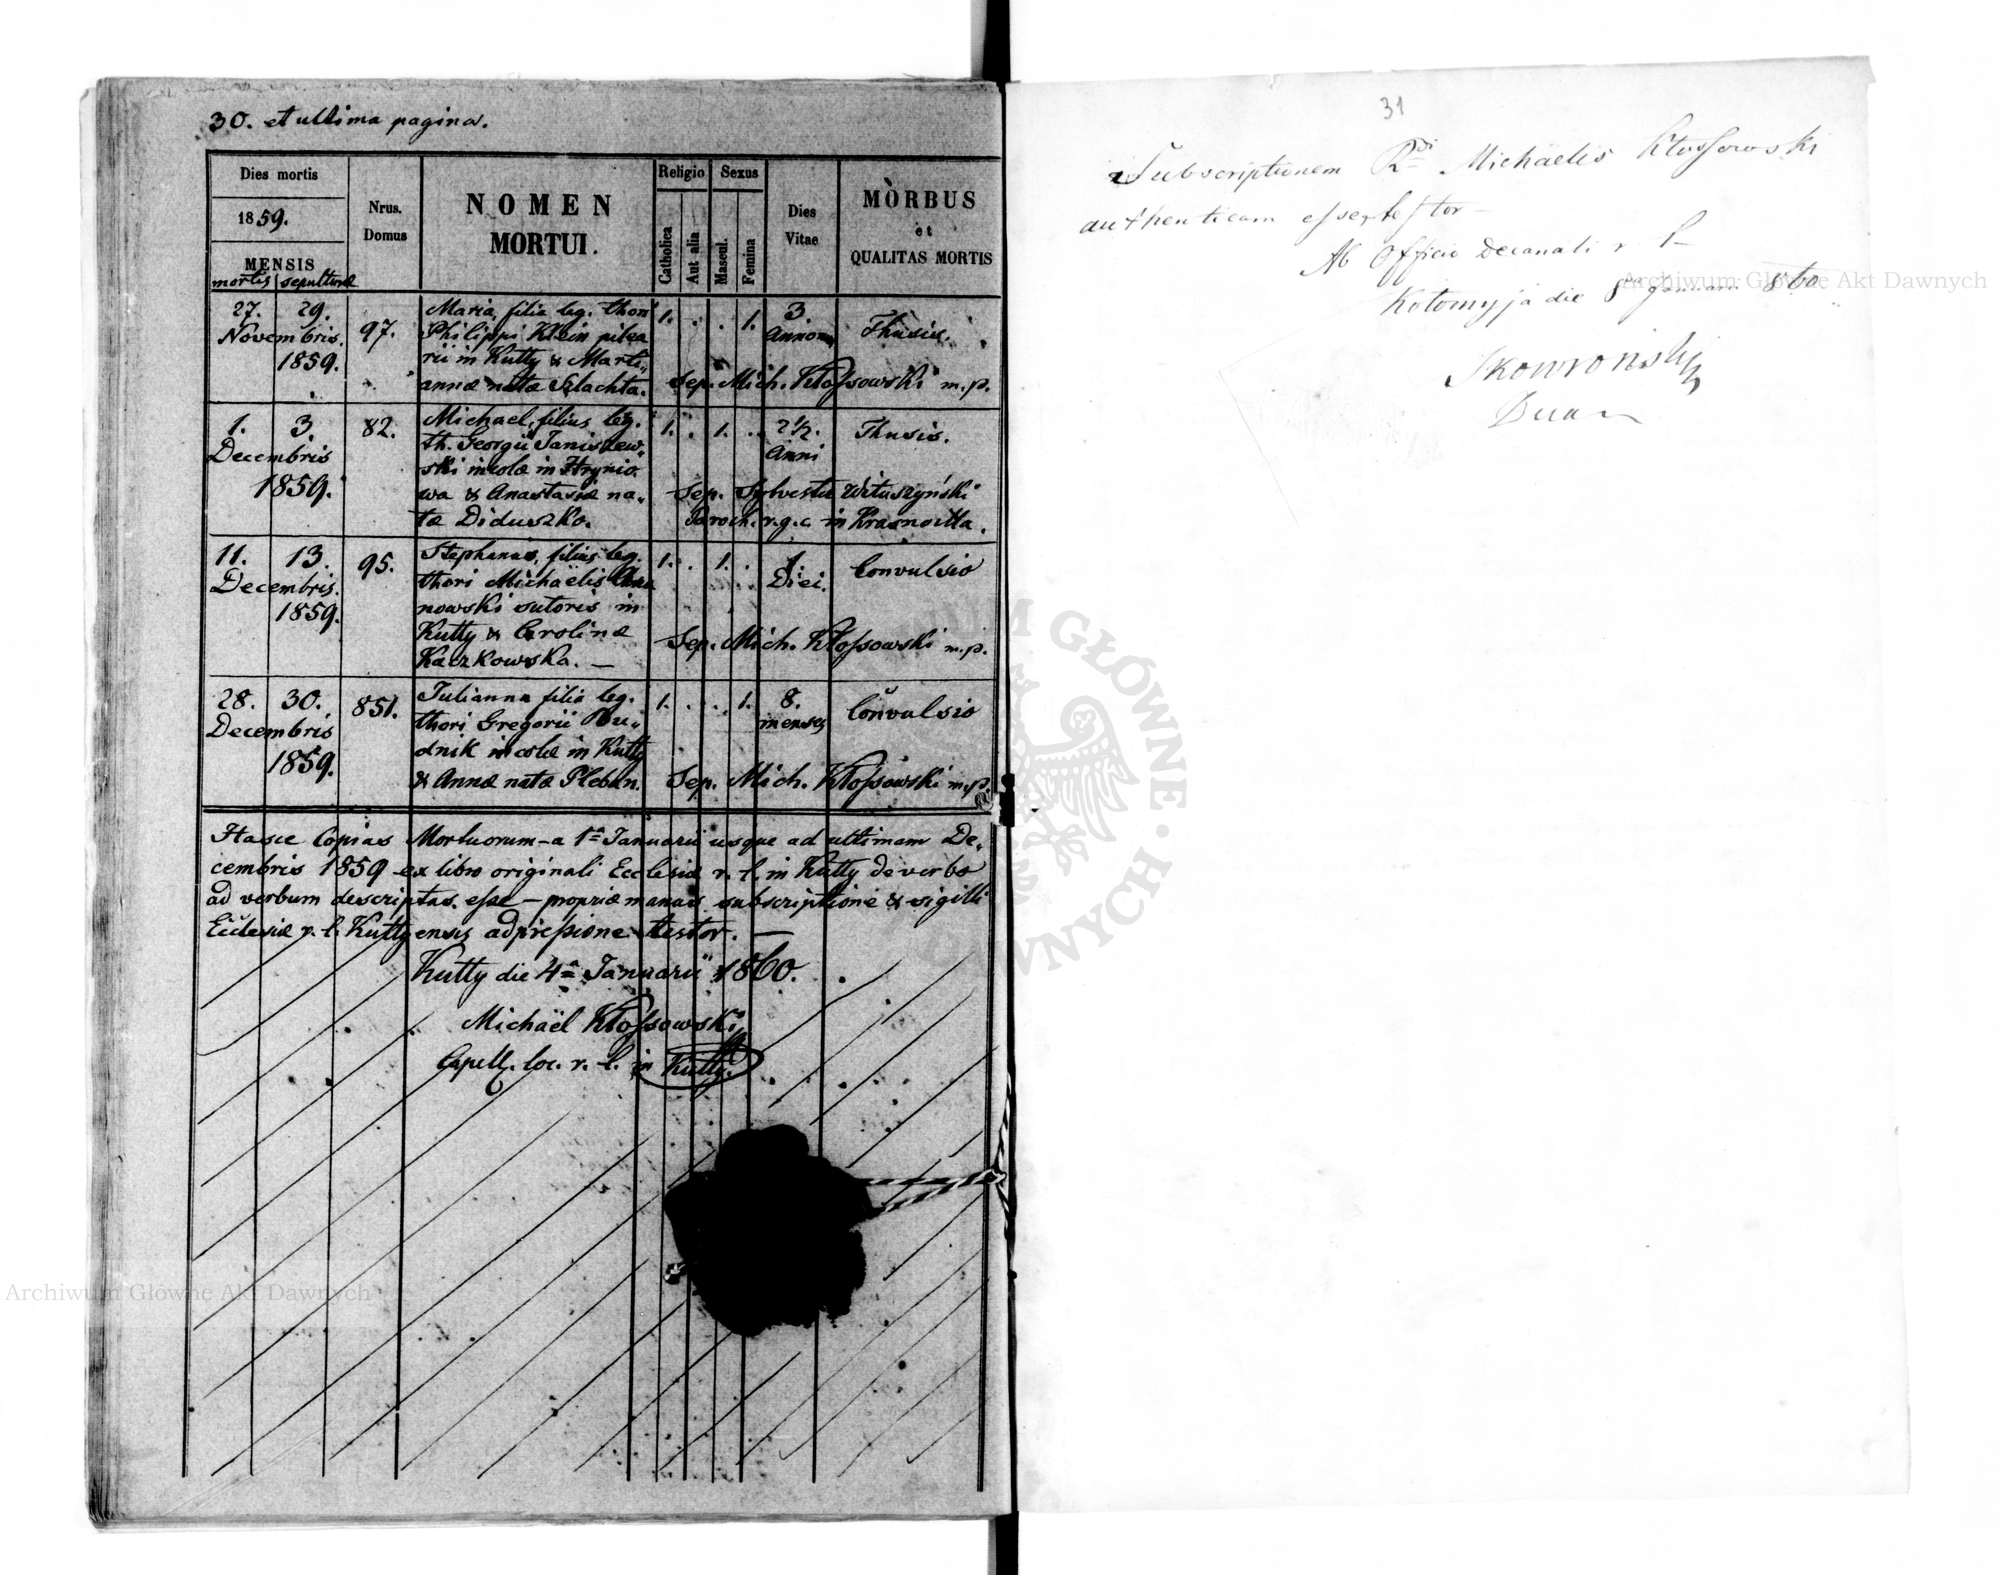 30. et ultima pagina.
Dies mortis
1859.
MENSIS
mortis sepulturæ
Nrus. Domus
NOMEN
MORTUI.
Religio
Catholica
Aut alia
Sexus
Mascul.
Femina
Dies
Vitae
MORBUS
et
QUALITAS MORTIS
27. 29.
Novembris.
1859.
97.
Maria, filia leg. thori
Philippi Klein pilea
rii in Kutty & Mari„
annæ natæ Szlachta.
1. . . 1.
3.
Annorum
Thusis.
Sep. Mich. Kłoſsowski m.p.
1. 3.
Decembris
1859.
82.
Michael, filius leg.
th. Georgii Janiszew„
ski incolæ in Hrynio
wa & Anastasiæ na„
tæ Diduszko.
1. . 1. .
2 1/2.
Anni
Thusis.
Sep. Sylvester Wituszyński
Paroch. r. g. c. in Krasnoilla.
11. 13.
Decembris.
1859.
95.
Stephanus, filius leg.
thori Michaëlis
nowski sutoris in
Kutty & Carolinæ
Kaczkowska. —
1. . 1. .
1
Diei.
Convulsio
Sep. Mich. Kłoſsowski m.p.
28. 30.
Decembris
1859.
851.
Julianna filia leg.
thori Gregorii Bu„
dnik incolæ in Kutty
& Annæ natæ Pleban.
1. . . 1.
8.
menses
Convulsio
Sep. Mich. Kłoſsowski m.p.
Hasce Copias Mortuorum – a 1ª Januarii usque ad ultimam De„
cembris 1859 – ex libro originali Ecclesiæ r. l. in Kutty de verbo
ad verbum descriptas eſse – propriæ manus subscriptione & sigilli
Ecclesiæ r. l. Kuttyensis adpreſsione testor. —
Kutty die 4ª Januarii 1860.
Michaël Kłoſsowski
Capell. loc. r. l. in Kutty.
31
Subscriptionem Rdi Michäelis Kłoſsowski
authenticam eſse testor –
Ab Officio Decanali r. l.
Kołomyja die 8 Januarii 860
Skowronski
Decan
Archiwum Główne Akt Dawnych
Archiwum Główne Akt Dawnych